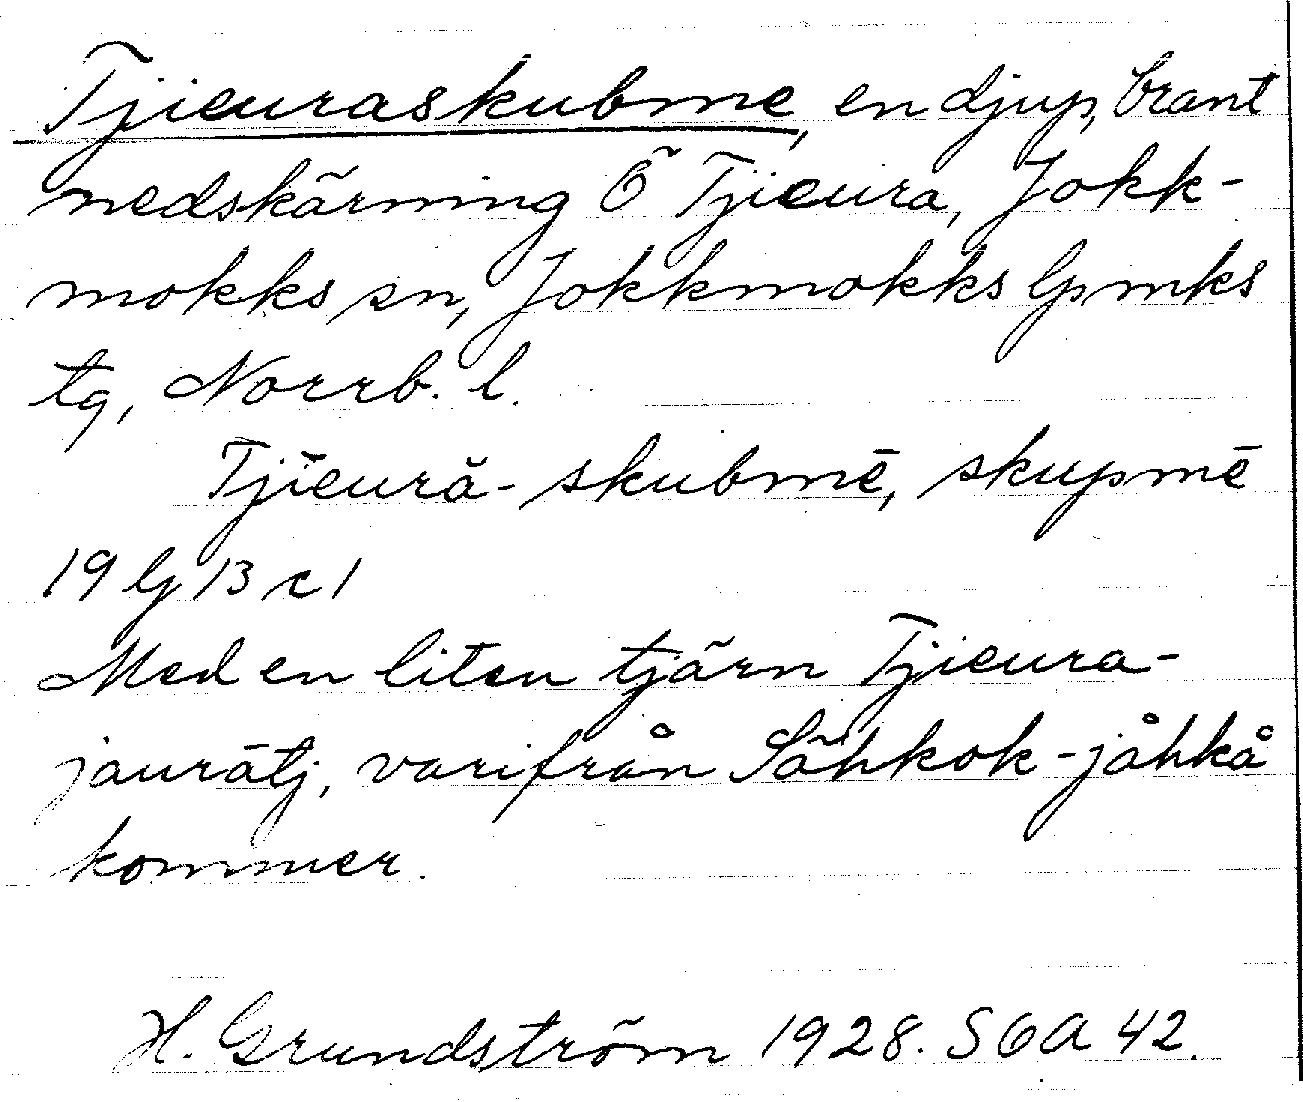 Tjieuraskubme, en djup, brant
nedskärning Ö Tjieura, Jokk-
mokks sn, Jokkmokks lpmks
tg, Norrb. l.
Tjīeurā- skubmē, skupmē
19 lj 13 c 1
Med en liten tjärn Tjieura-
jaurātj, varifrån Såhkok-jåhkå
kommer.
H. Grundström 1928. SOA 42.